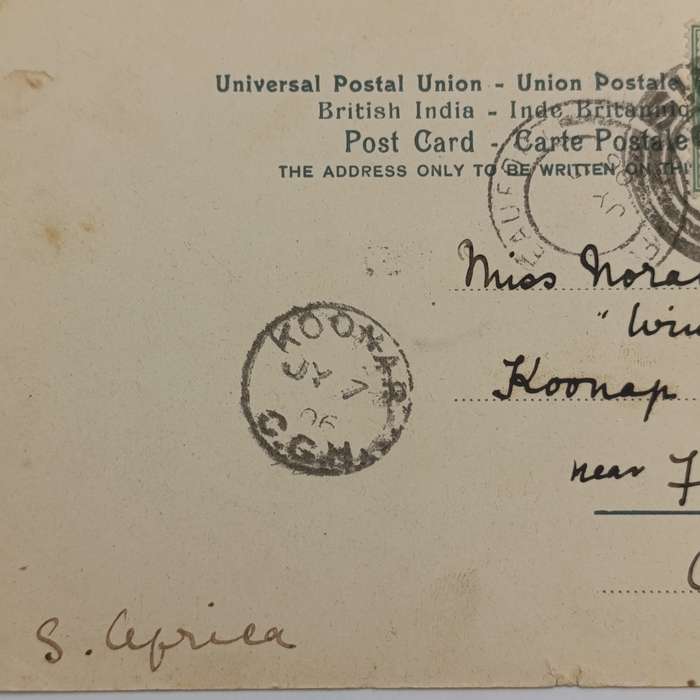 Universal Postal Union - Union Postale
British India - Inde Britanniq
Post Card - Carte Postale
THE ADDRESS ONLY TO BE WRITTEN ON THI
JY
Miss Nora
"Win
Koonap
near F
KOONAP
JY 7
06
C.G.H.
S. Africa